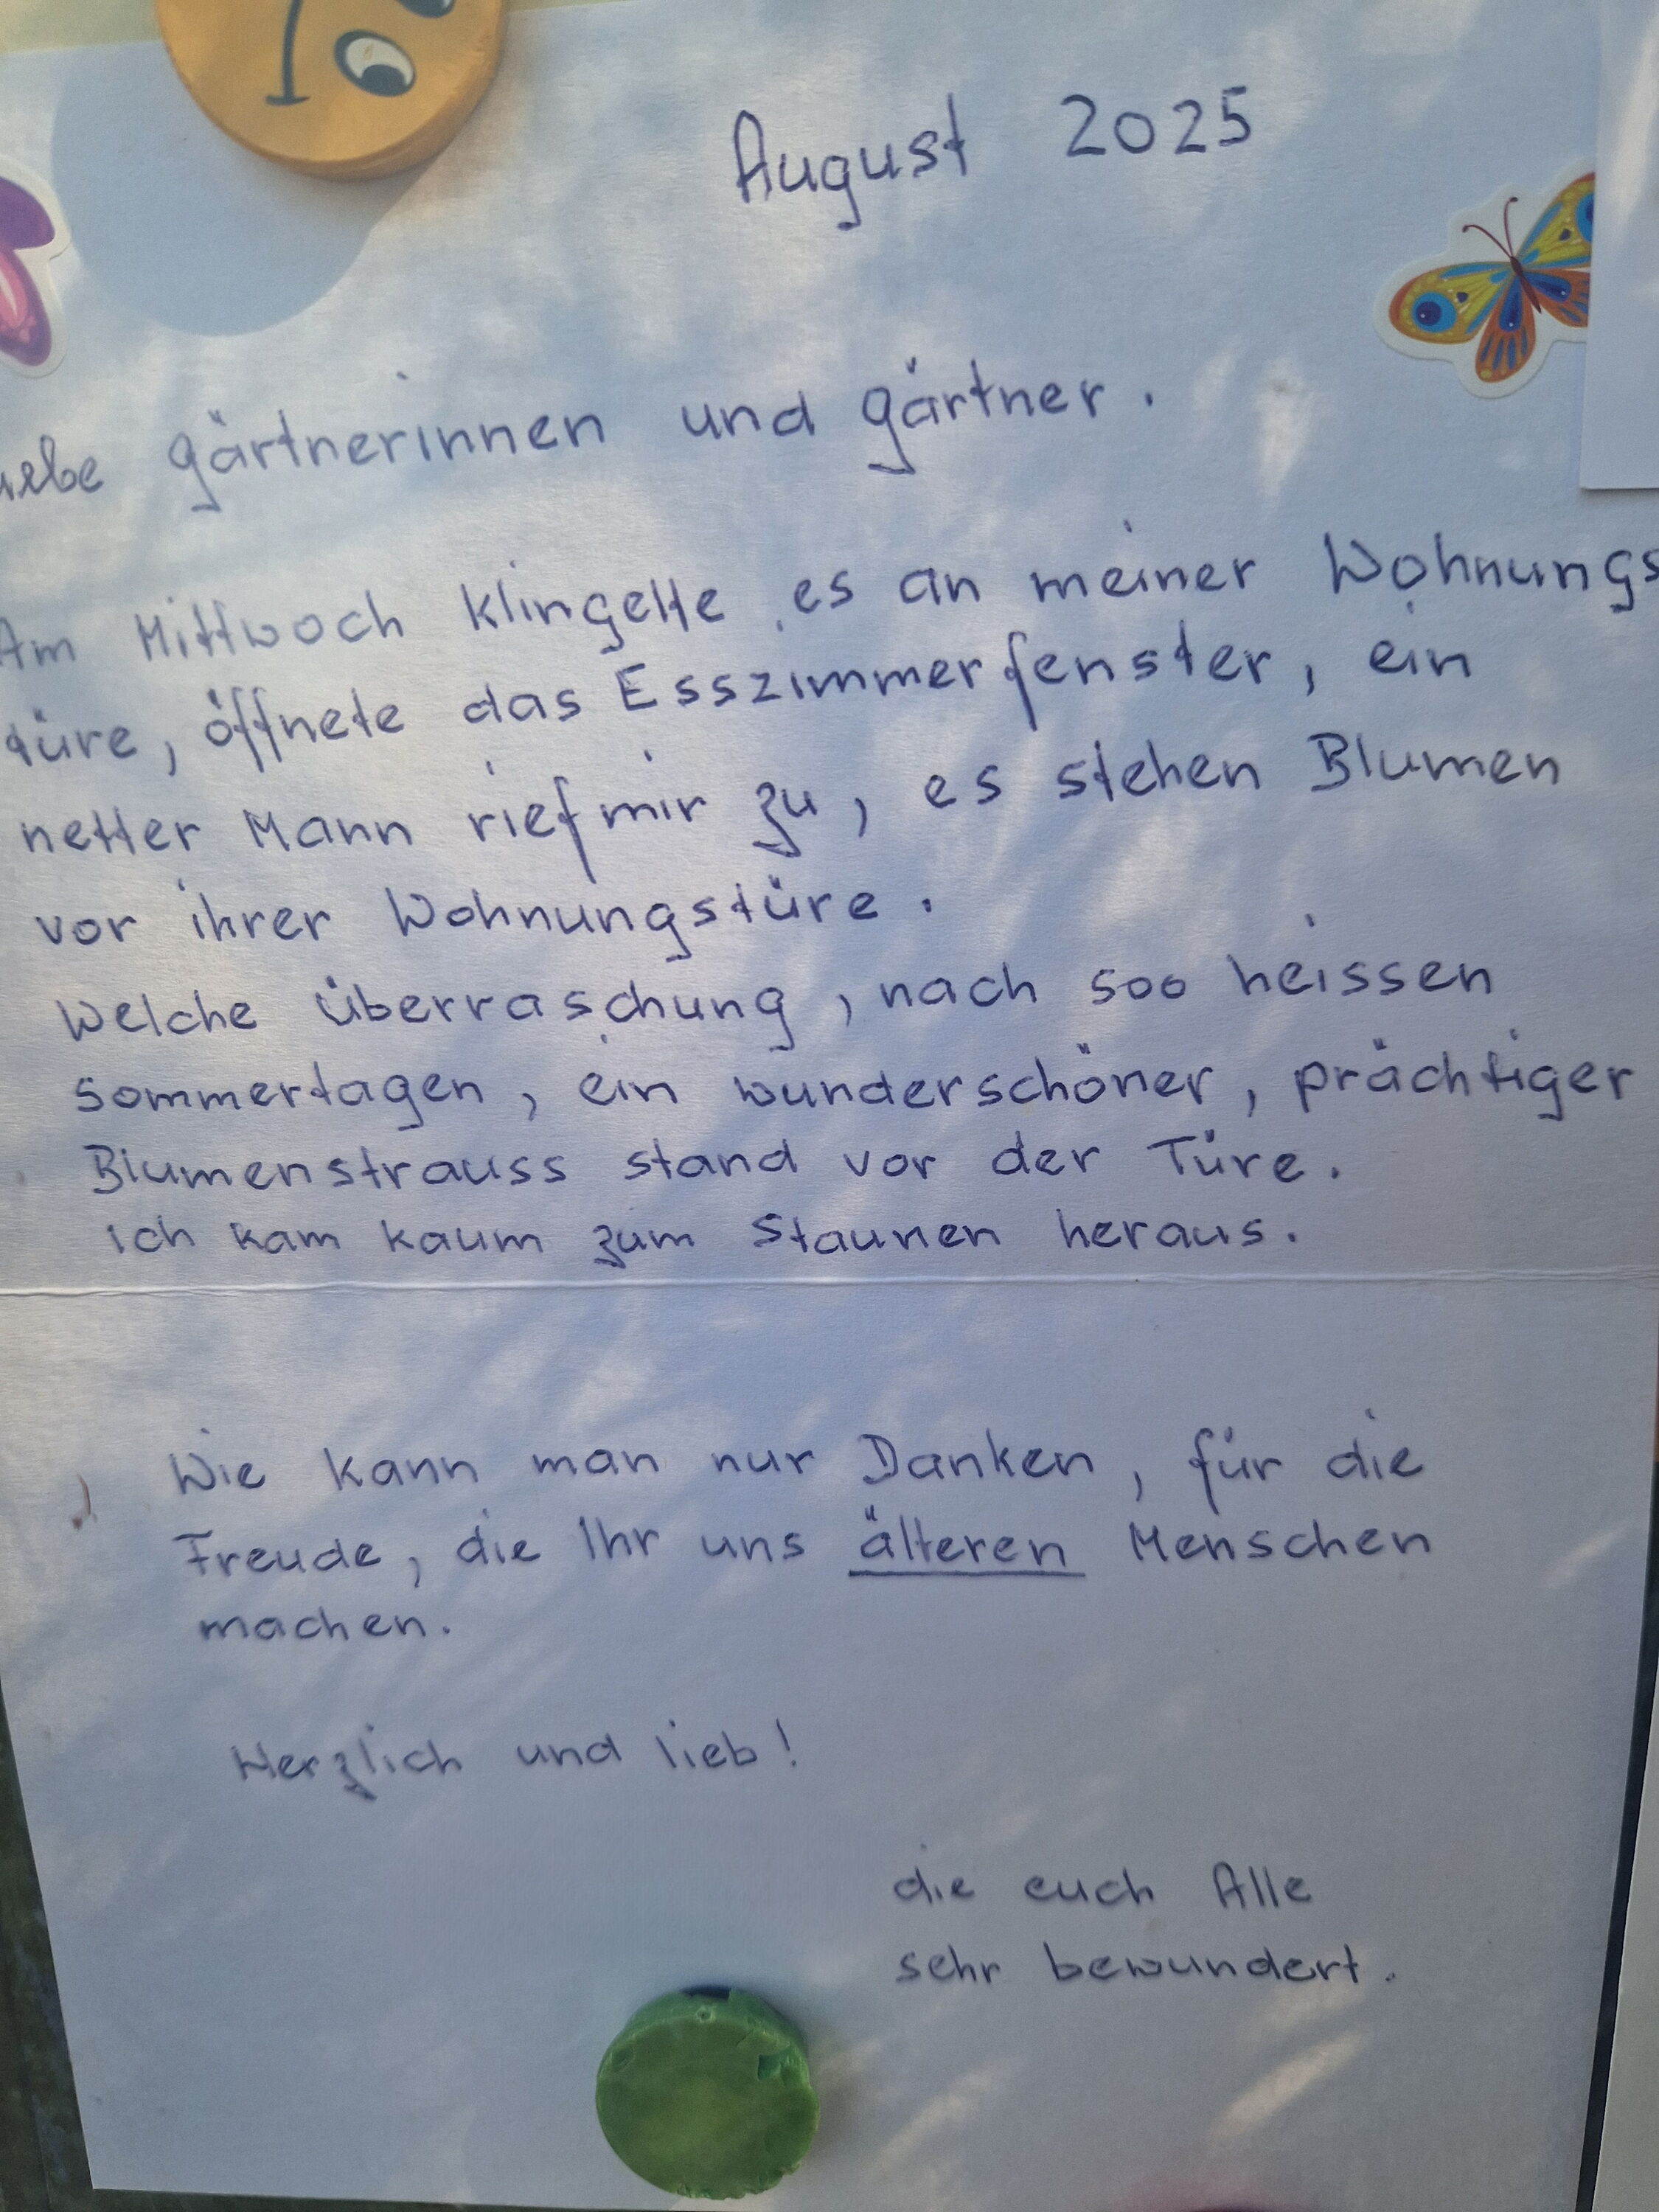 August 2025
liebe gärtnerinnen und gärtner.
Am Mittwoch klingelte es an meiner Wohnungs
türe, öffnete das Esszimmerfenster, ein
netter Mann rief mir zu, es stehen Blumen
vor ihrer Wohnungstüre.
Welche überraschung, nach soo heissen
sommertagen, ein wunderschöner, prächtiger
Blumenstrauss stand vor der Türe.
ich kam kaum zum Staunen heraus.
Wie kann man nur Danken, für die
Freude, die Ihr uns älteren Menschen
machen.
Herzlich und lieb!
die euch Alle
sehr bewundert.